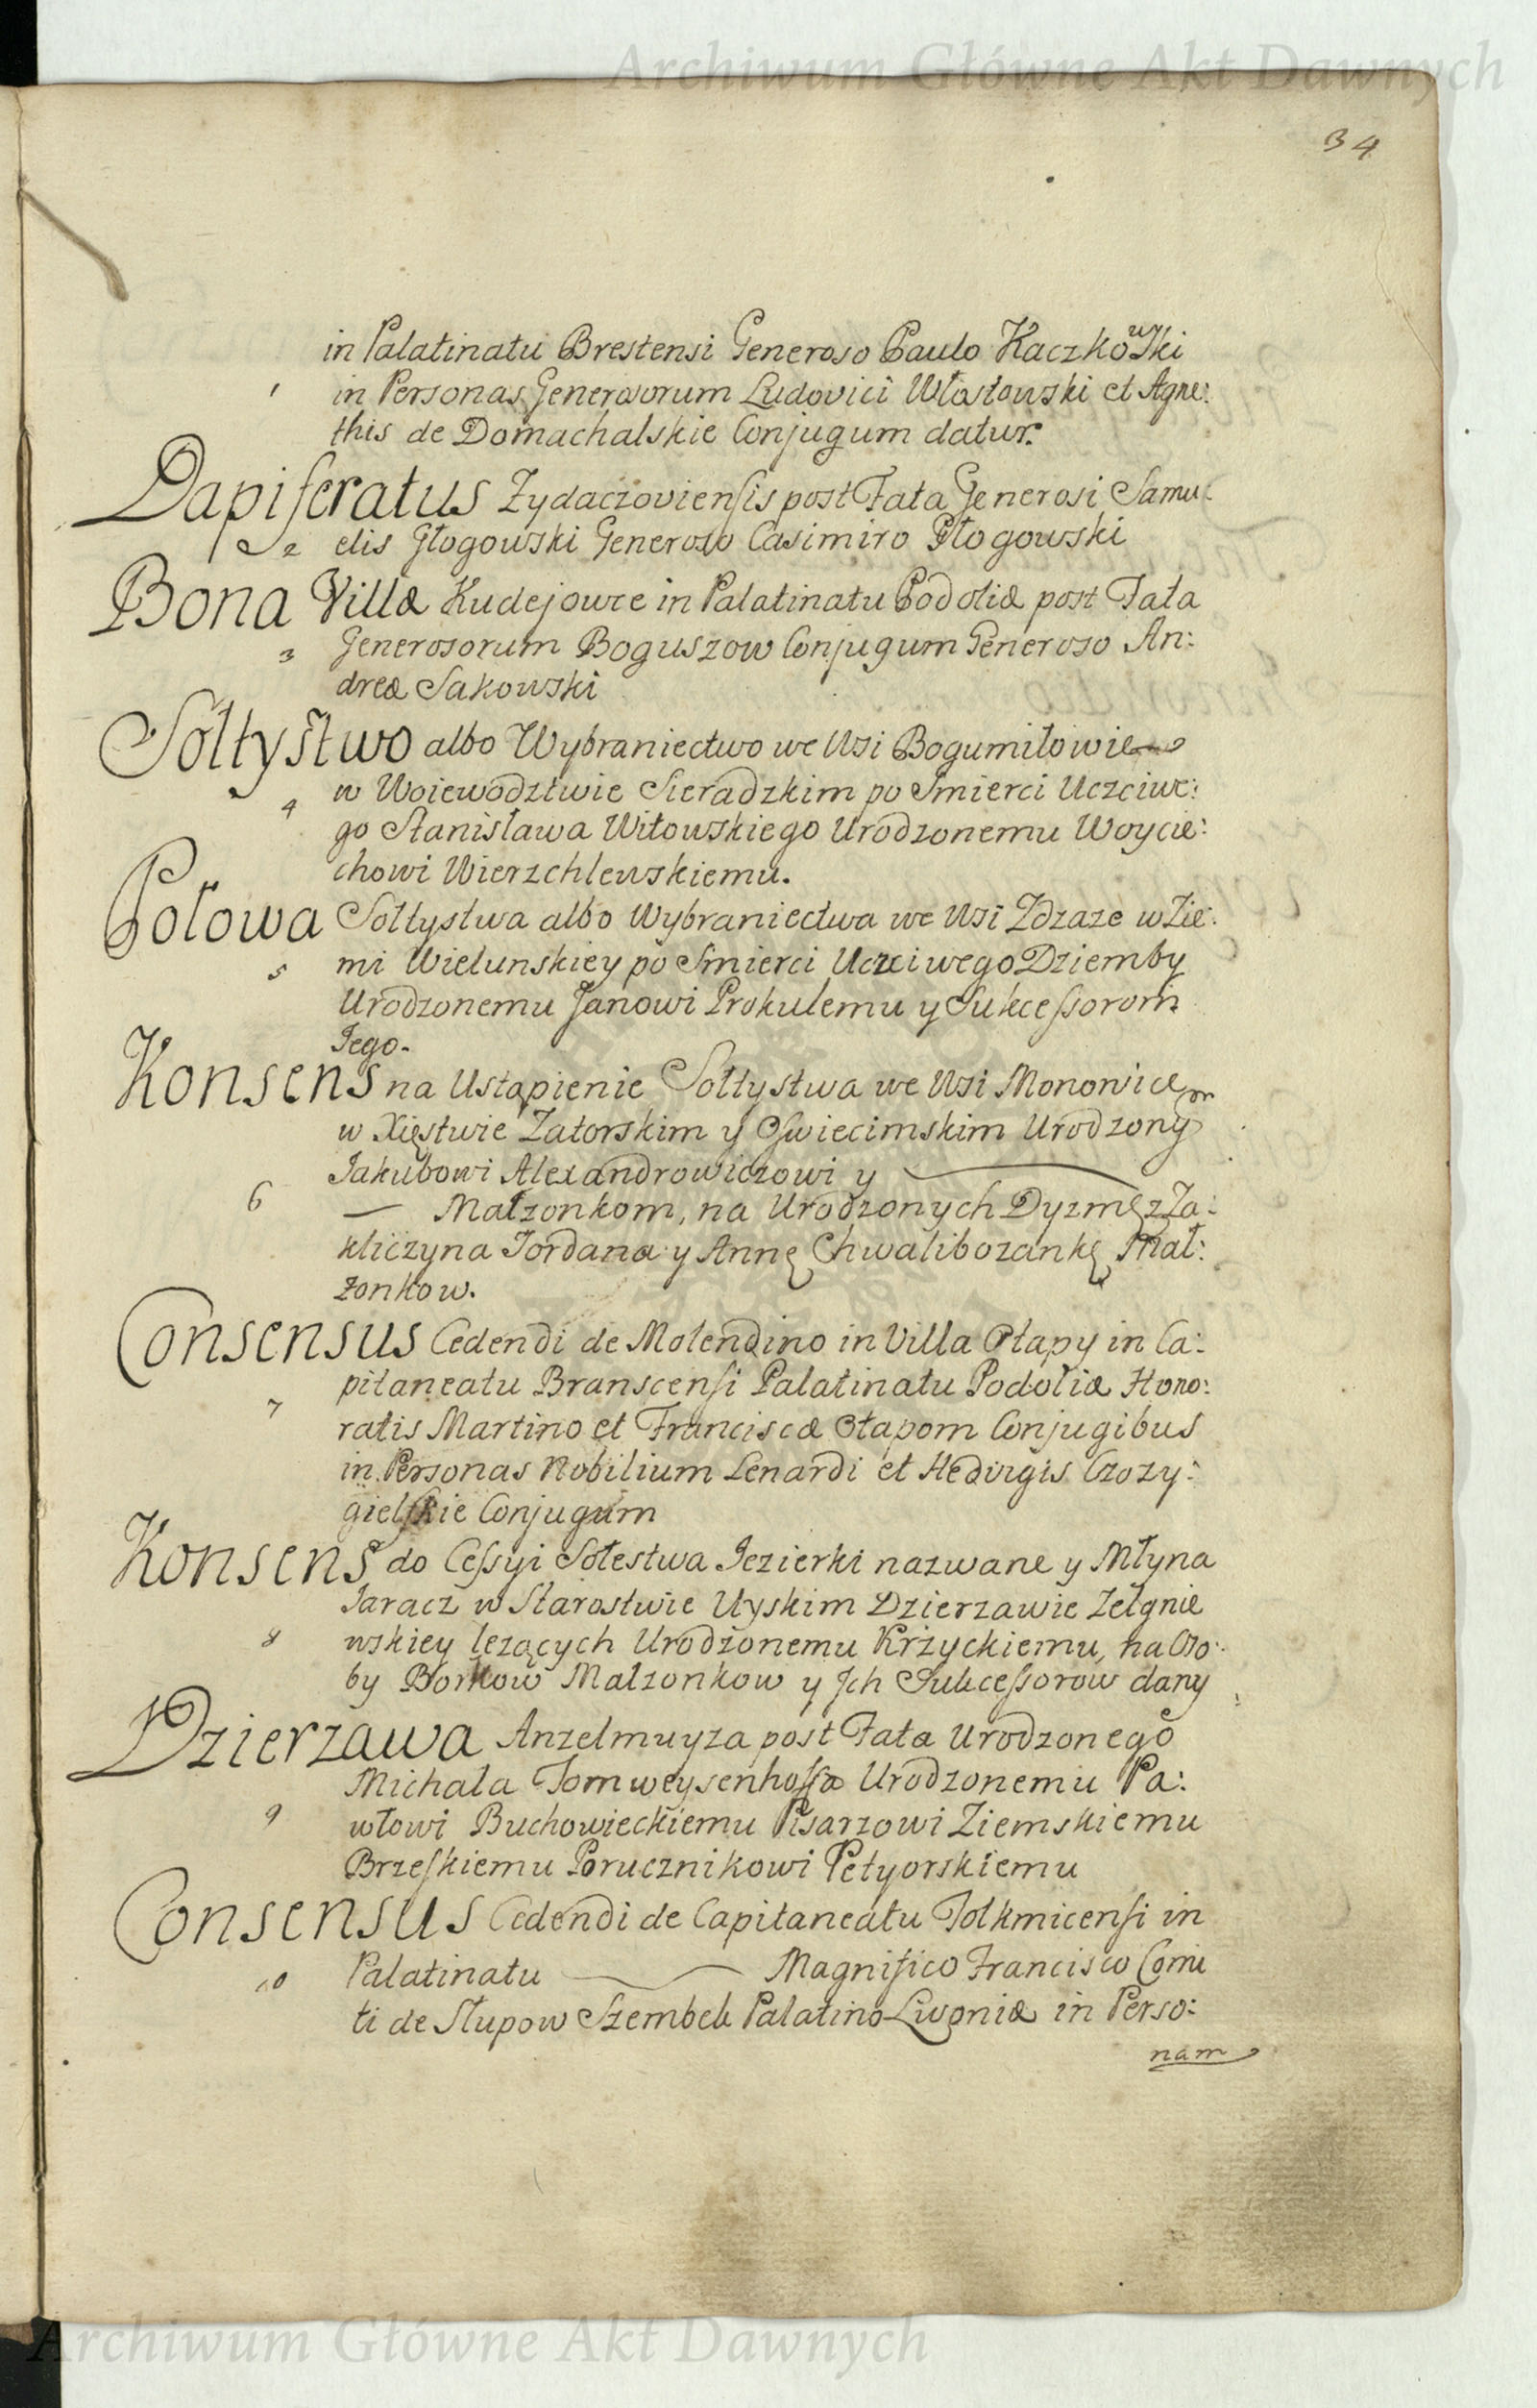 Archiwum Główne Akt Dawnych
34
in Palatinatu Brestensi Generoso Paulo Kaczkowski
1 in Personas Generosorum Ludovici Włostowski et Agne:
this de Domachalskie Conjugum datur.
Dapiferatus Zydaczoviensis post Fata Generosi Samu:
2 elis Głogowski Generoso Casimiro Głogowski
Bona Villæ Kudejowce in Palatinatu Podoliæ post Fata
3 Generosorum Boguszow Conjugum Generoso An:
dreæ Sakowski
Sołtystwo albo Wybraniectwo we Wsi Bogumiłowie
4 w Woiewodztwie Sieradzkim po Smierci Uczciwe:
go Stanisława Witowskiego Urodzonemu Woycie:
chowi Wierzchlewskiemu.
Połowa Sołtystwa albo Wybraniectwa we Wsi Zdzaze w Zie:
5 mi Wielunskiey po Smierci Uczciwego Dziemby
Urodzonemu Janowi Prokulemu y Sukcessorom
Jego.
Konsens na Ustąpienie Sołtystwa we Wsi Monowice
w Xięstwie Zatorskim y Oswiecimskim Urodzonym
Jakubowi Alexandrowiczowi y
6 Małzonkom, na Urodzonych Dyzmę z Za:
kliczyna Jordana y Annę Chwalibozankę Mał:
zonkow.
Consensus Cedendi de Molendino in Villa Otapy in Ca:
pitaneatu Branscensi Palatinatu Podoliæ Hono:
7 ratis Martino et Franciscæ Otapom Conjugibus
in Personas Nobilium Lenardi et Hedvigis Czozy:
gielskie Conjugum
Konsens do Cessyi Sołestwa Jezierki nazwane y Młyna
Jaracz w Starostwie Uyskim Dzierzawie Zelgnie
8 wskiey lezących Urodzonemu Krzyckiemu, na Oso:
by Borkow Malzonkow y Jch Sukcessorow dany
Dzierzawa Anzelmuyza post Fata Urodzonego
Michala Tomweysenhoffa Urodzonemu Pa:
9 włowi Buchowieckiemu Pisarzowi Ziemskiemu
Brzeskiemu Porucznikowi Petyorskiemu
Consensus Cedendi de Capitaneatu Tolkmicensi in
10 Palatinatu Magnifico Francisco Comi
ti de Słupow Szembek Palatino Livoniæ in Perso:
nam
Archiwum Główne Akt Dawnych